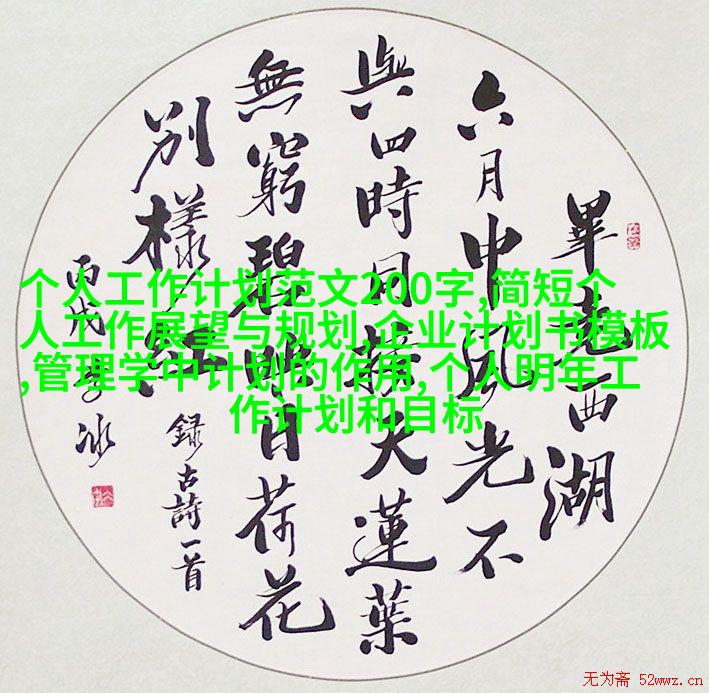 畢竟西湖
六月中风光不
與四時同接天蓮葉
無窮碧映日荷花
别樣紅
録古詩一首
丙戌李冰
个人工作计划范文200字,简短个
人工作展望与规划,企业计划书模板
,管理学中计划的作用,个人明年工
作计划和目标
无为斋 52wwz.cn